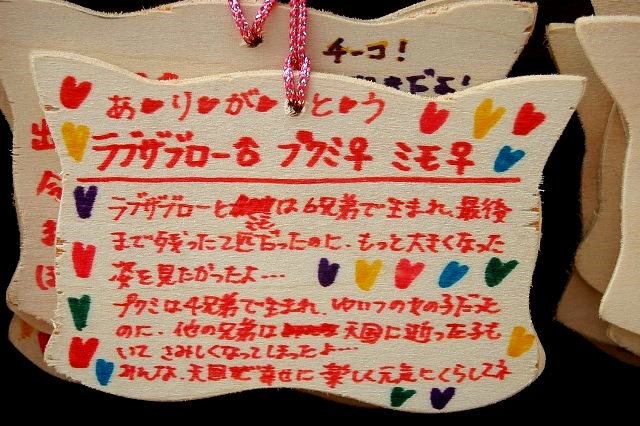 チーコ!
だよ!
あ♥り♥が♥と♥う
ラブザブロー♂ プクミ♀ ミモ♀
ラブザブローと ミモ は6兄弟で生まれ、最後
まで残った2匹だったのに、もっと大きくなった
姿を見たかったよ…
プクミは4兄弟で生まれ、ゆいつの女の子だった
のに、他の兄弟は 天国に逝った子も
いて さみしくなってしまったよ…
みんな、天国で幸せに楽しく元気にくらしてネ
出
今
ま
ほ